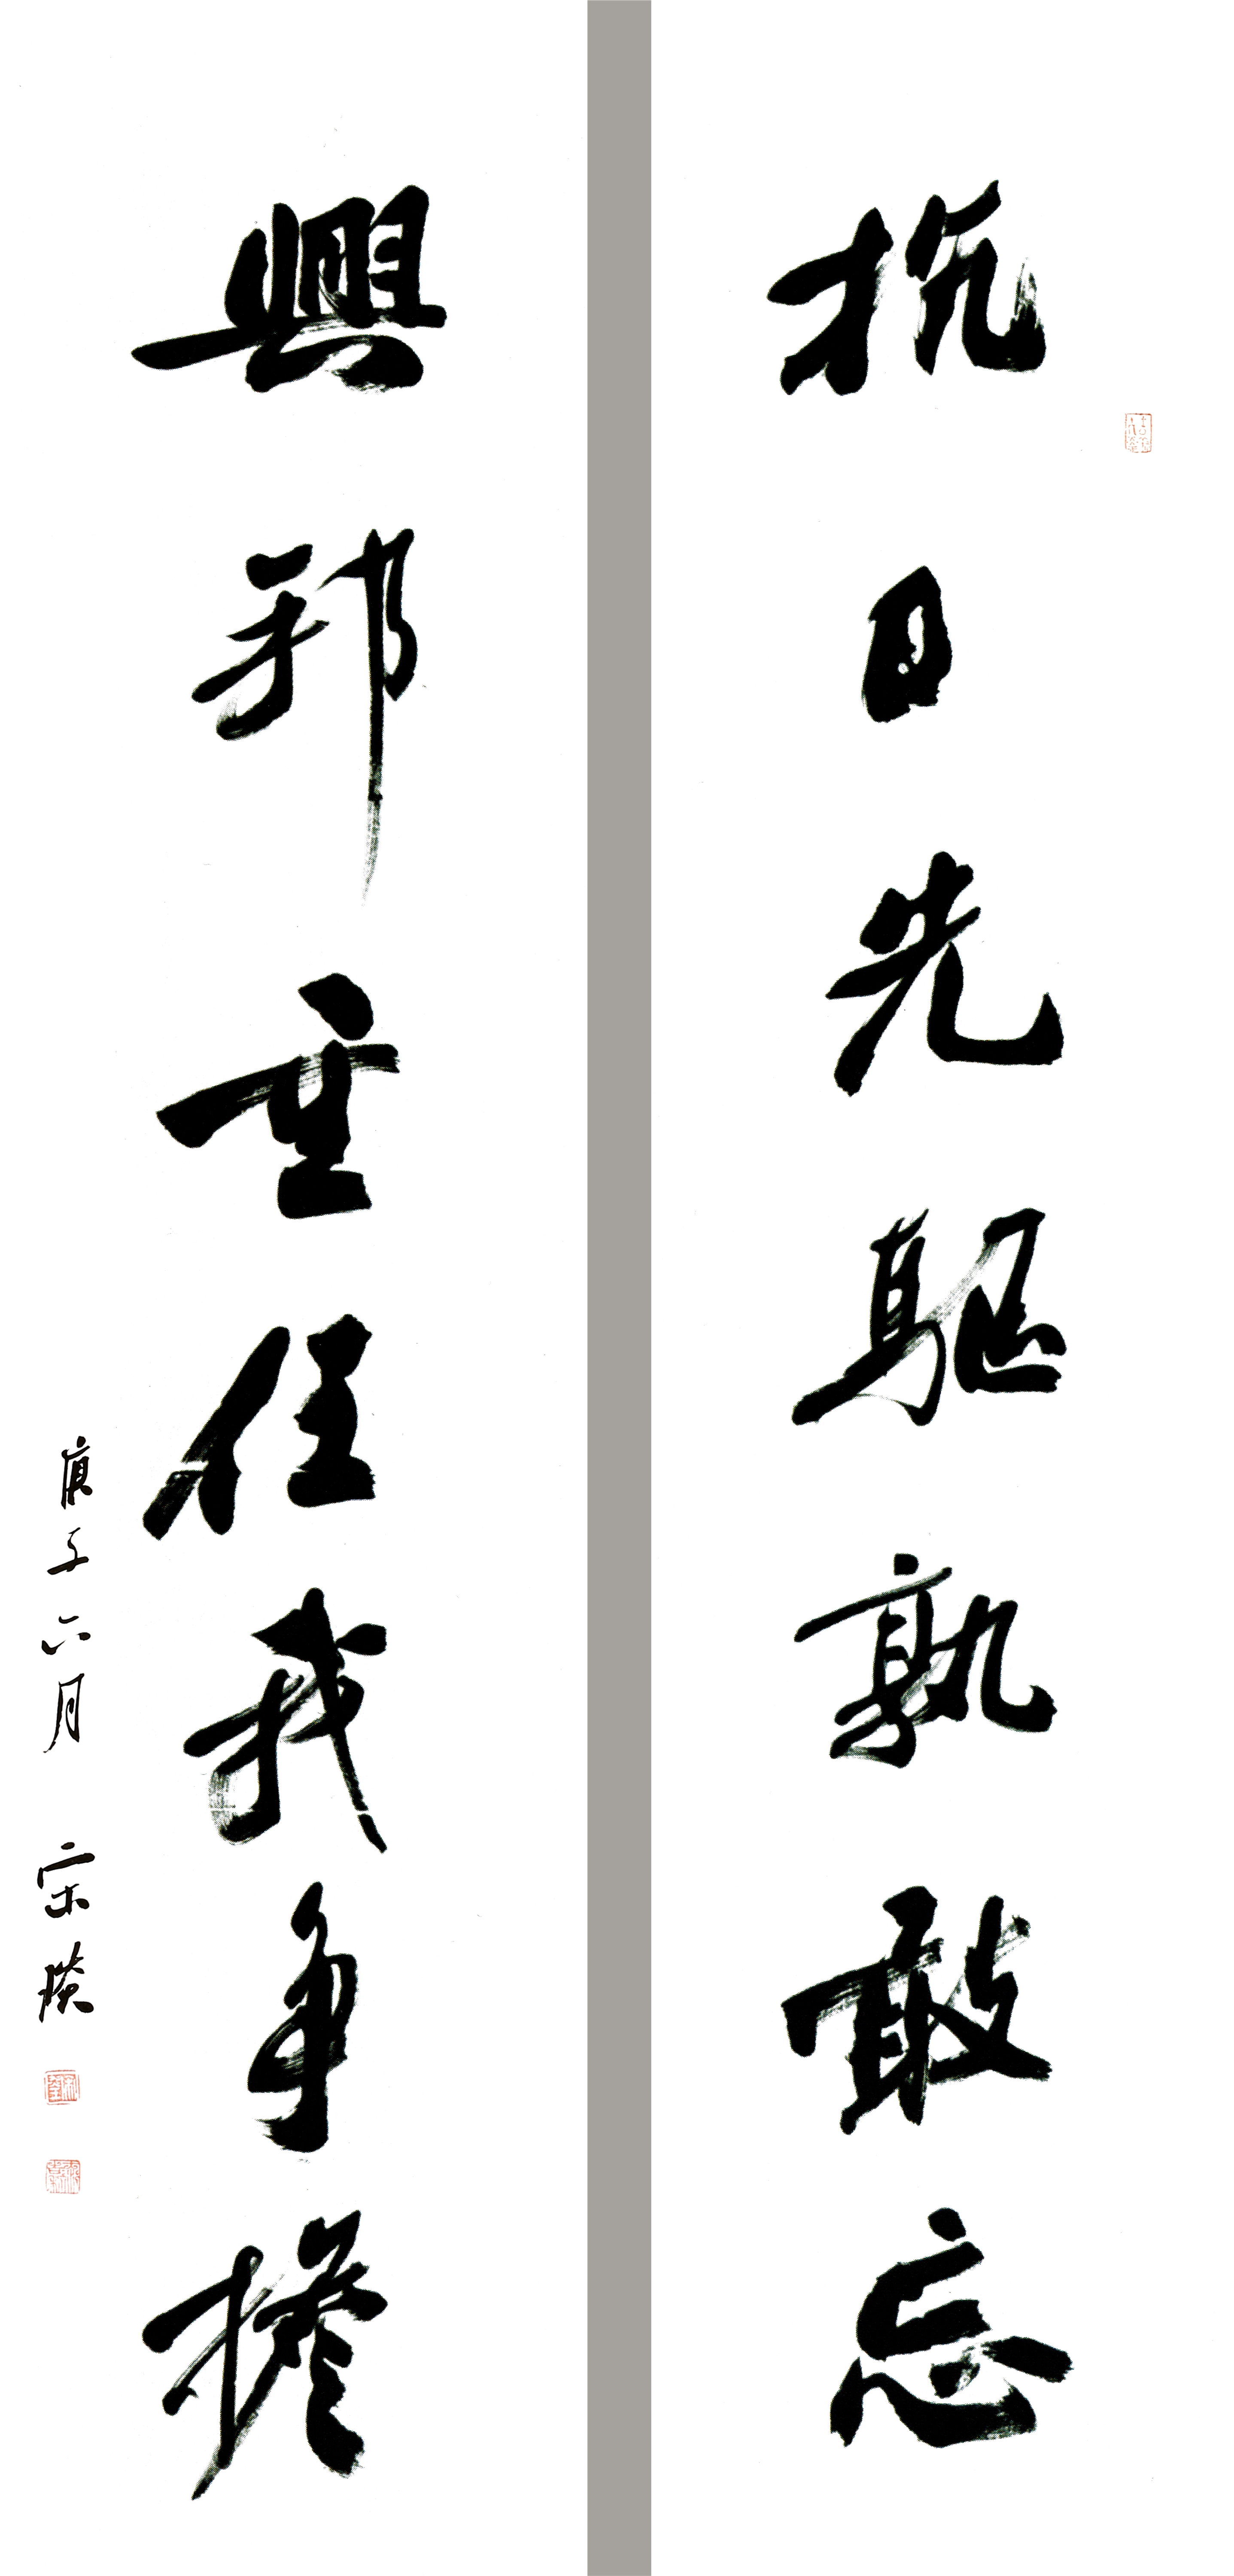 抗日先驅孰敢忘
興邦重任我争擔
庚子六月 宋琰